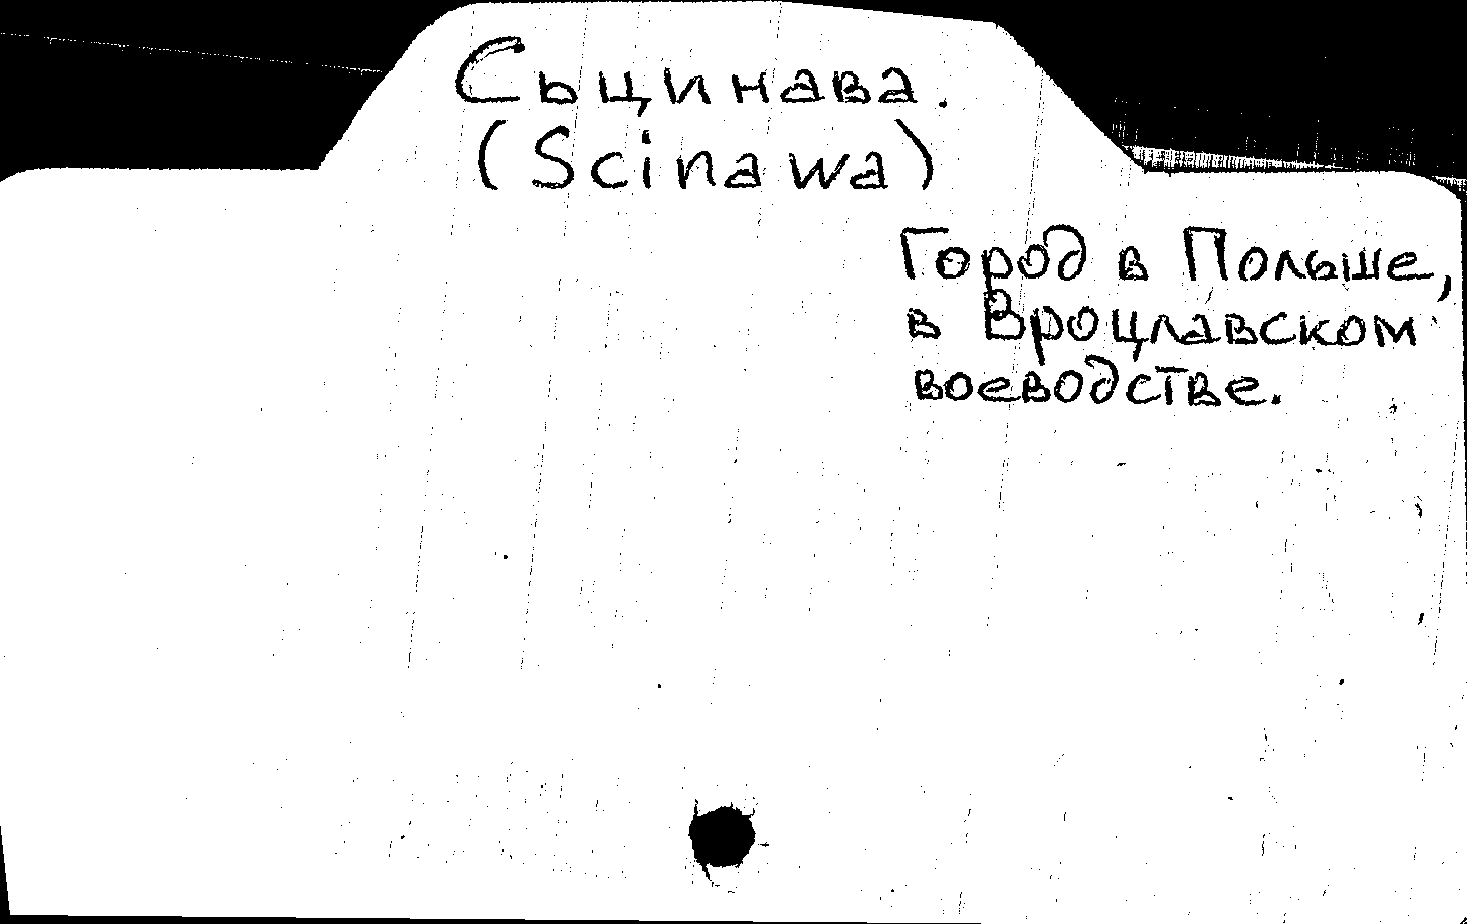 Сьцинава.
(Scinawa)
Город в Польше,
в Вроцлавском
воеводстве.